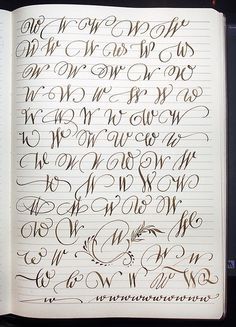 W W W W W W
W W W W W W W
W W W W W W
W W W W W W W
W W W W W W W
W W W W W W W
W W W W W
W W W W W W
W W W W W
W W W W
W W W W
W W W W W W
w wwwwwwwwwww